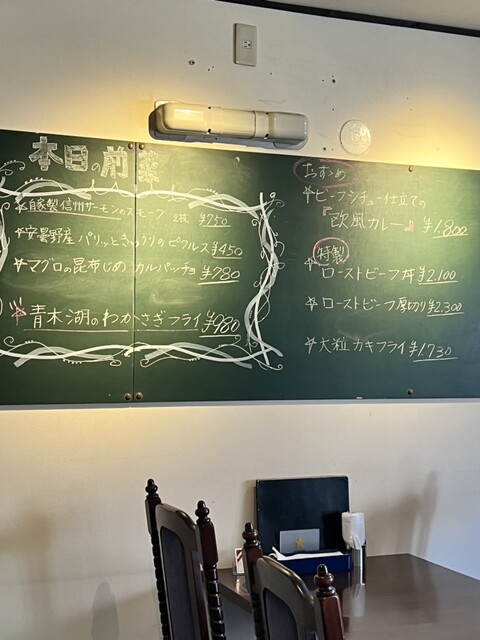 本日の前菜
☆自家製信州サーモンのスモーク 2枚 ¥750
☆安曇野産パリッときゅうりのピクルス ¥450
☆マグロの昆布じめ カルパッチョ ¥780
☆青木湖のわかさぎフライ ¥980
おすすめ
☆ビーフシチュー仕立ての
『欧風カレー』 ¥1.800
特製
☆ローストビーフ丼 ¥2.100
☆ローストビーフ厚切り ¥2.300
☆大粒カキフライ ¥1.730